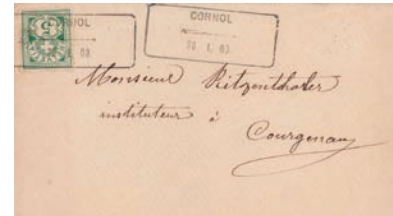 CORNOL
CORNOL
5
Monsieur Ritzenthaler
instituteur à
Courgenay